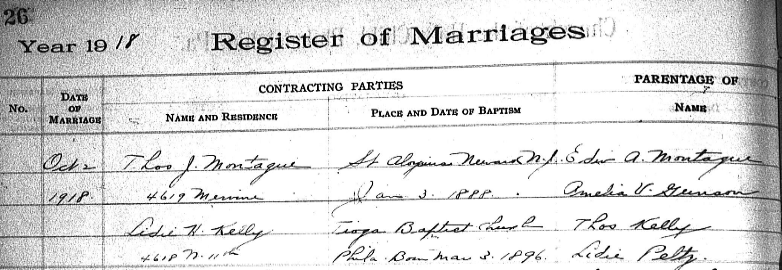 26
Year 1918 Register of Marriages
CONTRACTING PARTIES PARENTAGE OF
No. DATE OF MARRIAGE NAME AND RESIDENCE PLACE AND DATE OF BAPTISM NAME
Oct 2 Thos J. Montague St Aloysius Newark N.J. Edw A. Montague
1918. 4619 Mervine Jan 3. 1888. Amelia V. Gunson
Lidie H. Kelly Tioga Baptist Church Thos Kelly
4618 N. 11th Phila Born Mar 3. 1896. Lidie Peltz